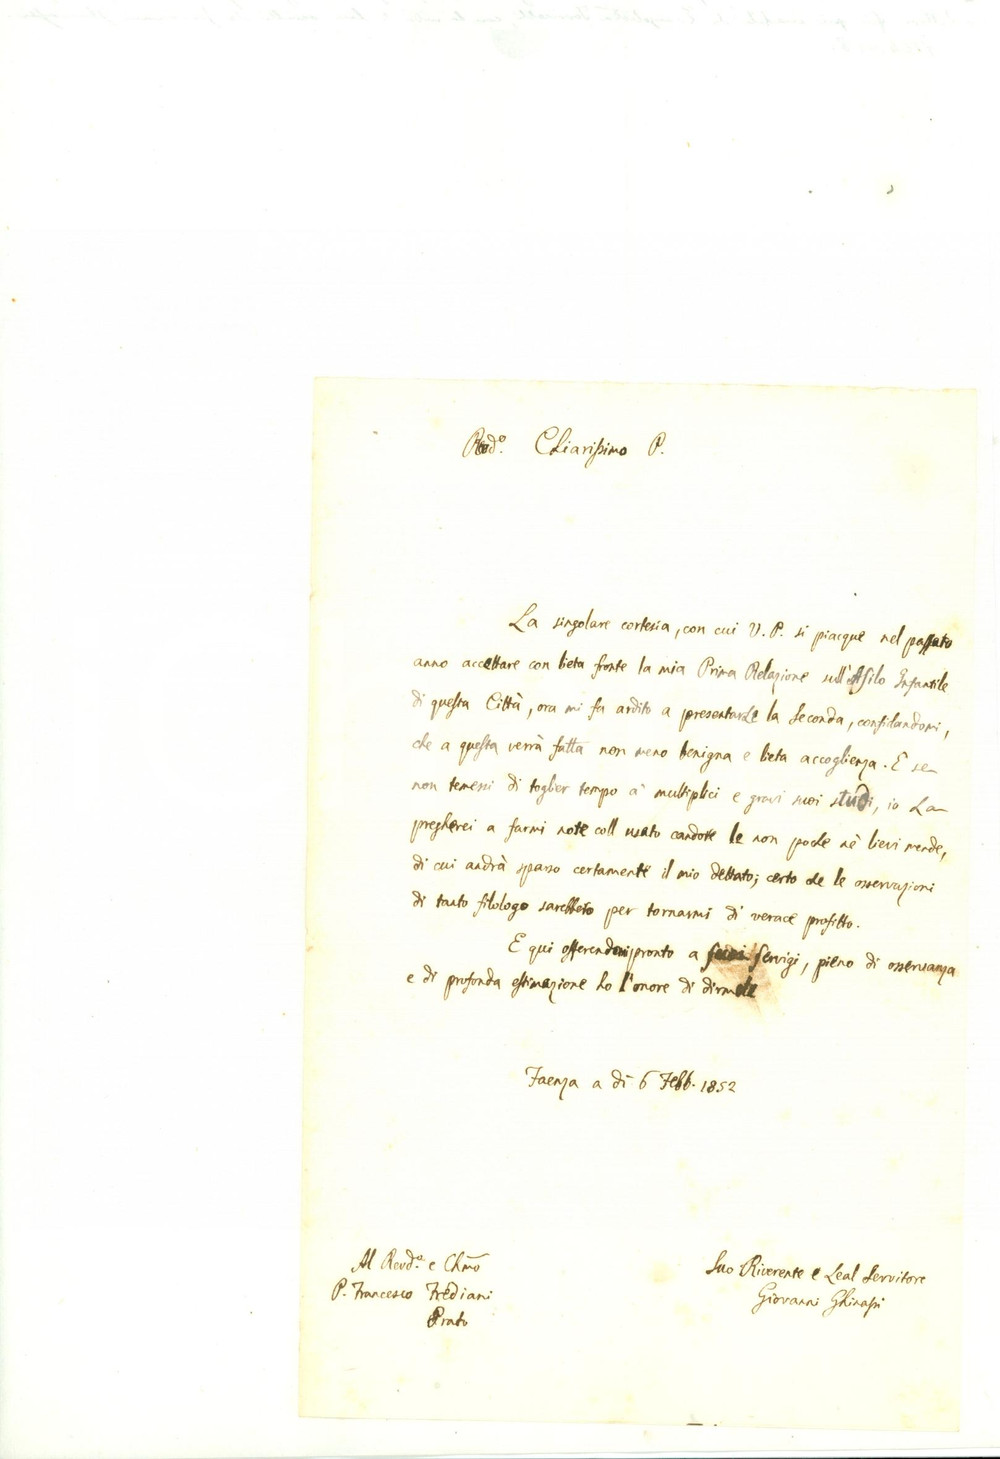 Revd.º Chiarissimo P.
La singolare cortesia, con cui V. P. si piacque nel passato
anno accettare con lieta fronte la mia Prima Relazione sull'Asilo Infantile
di questa Città, ora mi fa ardito a presentarle la Seconda, confidandomi,
che a questa verrà fatta non meno benigna e lieta accoglienza. E se
non temessi di toglier tempo a' multiplici e gravi suoi studi, io La
pregherei a farmi note coll usato candore le non poche nè lievi mende,
di cui andrà sparso certamente il mio dettato; certo che le osservazioni
di tanto filologo sarebbero per tornarmi di verace profitto.
E qui offerendomi pronto a Servigi, pieno di osservanza
e di profonda estimazione ho l'onore di dirmele
Faenza a dì 6 Febb. 1852
Al Revd.º e Chmo
P. Francesco Frediani
Prato
Suo Riverente e Leal Servitore
Giovanni Ghinassi